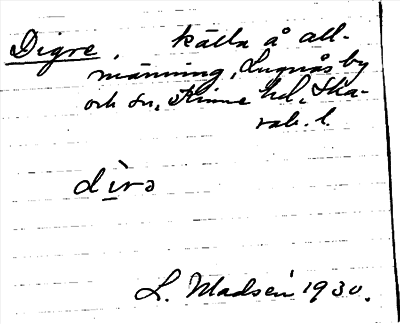 Digre, källa å all-
männing, Lugnås by
och sn, Kinne hd, Ska-
rab. l.
L. Madsén 1930.